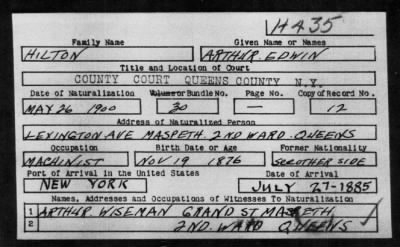 H435
Family Name Given Name or Names
HILTON ARTHUR EDWIN
Title and Location of Court
COUNTY COURT QUEENS COUNTY N.Y.
Date of Naturalization Volume or Bundle No. Page No. Copy of Record No.
MAY 26 1900 30 — 12
Address of Naturalized Person
LEXINGTON AVE MASPETH. 2ND WARD. QUEENS
Occupation Birth Date or Age Former Nationality
MACHINIST NOV 19 1876 SEE OTHER SIDE
Port of Arrival in the United States Date of Arrival
NEW YORK JULY 27-1885
Names, Addresses and Occupations of Witnesses To Naturalization
1 ARTHUR WISEMAN GRAND ST MASPETH
2 2ND. WARD QUEENS